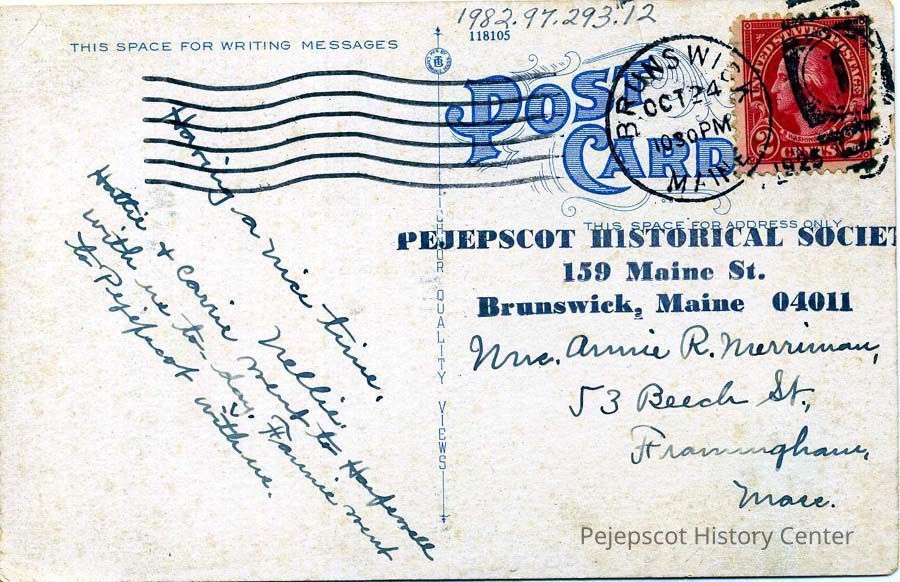 1982.97.293.12
118105
THIS SPACE FOR WRITING MESSAGES
POST
CARD
BRUNSWICK
OCT 24
1030 PM
MAINE
UNITED STATES POSTAGE
WASHINGTON
2 CENTS 2
THIS SPACE FOR ADDRESS ONLY
PEJEPSCOT HISTORICAL SOCIET
159 Maine St.
Brunswick, Maine 04011
Having a nice time.
Nellie.
Hattie & Carrie went to Harpswell
with us to-day. Fannie went
to Pejepscot with us.
Mrs. Annie R. Merriman,
53 Beech St,
Framingham,
Mass.
ICHROR QUALITY VIEWS
Pejepscot History Center